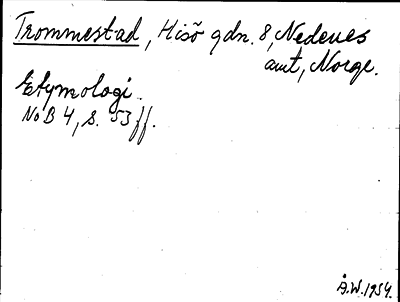 Trommestad, Hisö gdn. 8, Nedenes
amt, Norge.
Etymologi.
NoB 4, s. 53 ff.
Å.W. 1954.